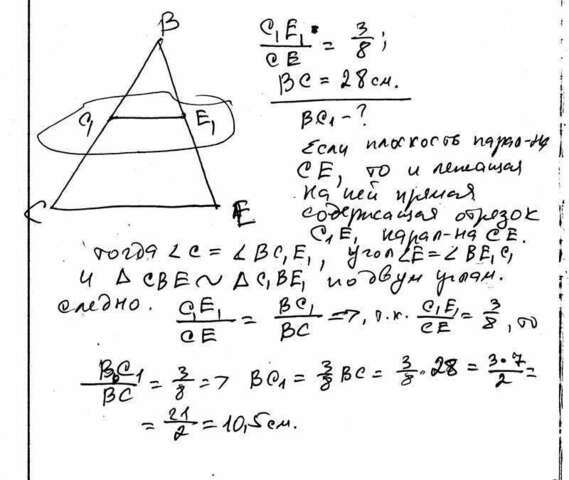 B
C₁ E₁
C E
C₁E₁/CE = 3/8;
BC = 28 см.
BC₁ - ?
Если плоскость парал-на
CE, то и лежащая
на ней прямая
содержащая отрезок
C₁E₁ парал-на CE.
тогда ∠C = ∠BC₁E₁, угол ∠E = ∠BE₁C₁
и △CBE ~ △C₁BE₁ по двум углам.
следно. C₁E₁/CE = BC₁/BC => , т.к. C₁E₁/CE = 3/8, то
BC₁/BC = 3/8 => BC₁ = 3/8 BC = 3/8 · 28 = 3·7/2 =
= 21/2 = 10,5 см.